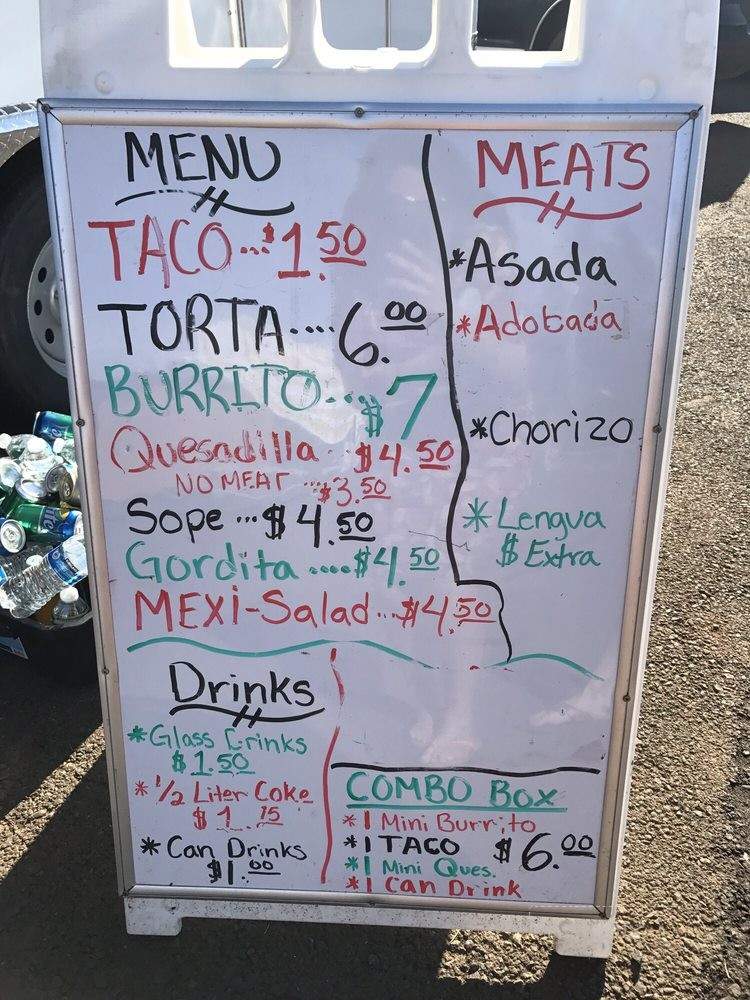 MENU
TACO...$1.50
TORTA....6.00
BURRITO...$7
Quesadilla..$4.50
NO MEAT...$3.50
Sope...$4.50
Gordita.....$4.50
MEXI-Salad..$4.50
MEATS
*Asada
*Adobada
*Chorizo
*Lengua
$ Extra
Drinks
*Glass Drinks
$1.50
*1/2 Liter Coke
$1.75
*Can Drinks
$1.00
COMBO Box
*1 Mini Burrito
*1 TACO $6.00
*1 Mini Ques.
*1 Can Drink